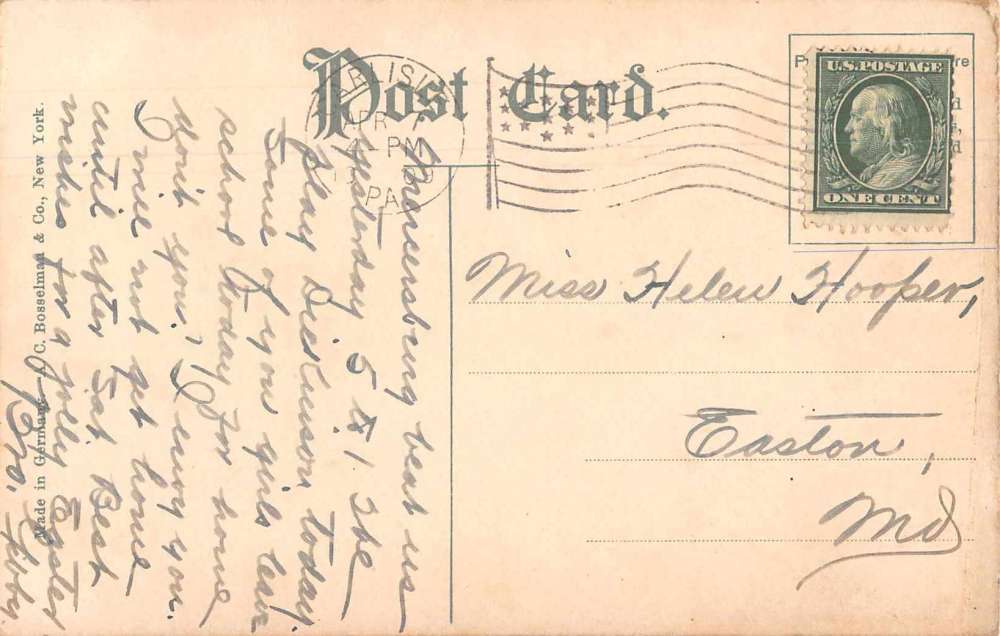 Post Card.
CARLISLE
APR
4-PM
PA.
U.S. POSTAGE
ONE CENT
Mercersburg beat us
yesterday 5 to 1. The
play Dickinson today.
Some of you girls leave
school today for home
don't you? I envy you.
I will not get home
until after Sat. Best
wishes for a jolly Easter
Bro.
Miss Helen Hooper,
Easton,
Md
Made in Germany C. Bosselman & Co., New York.